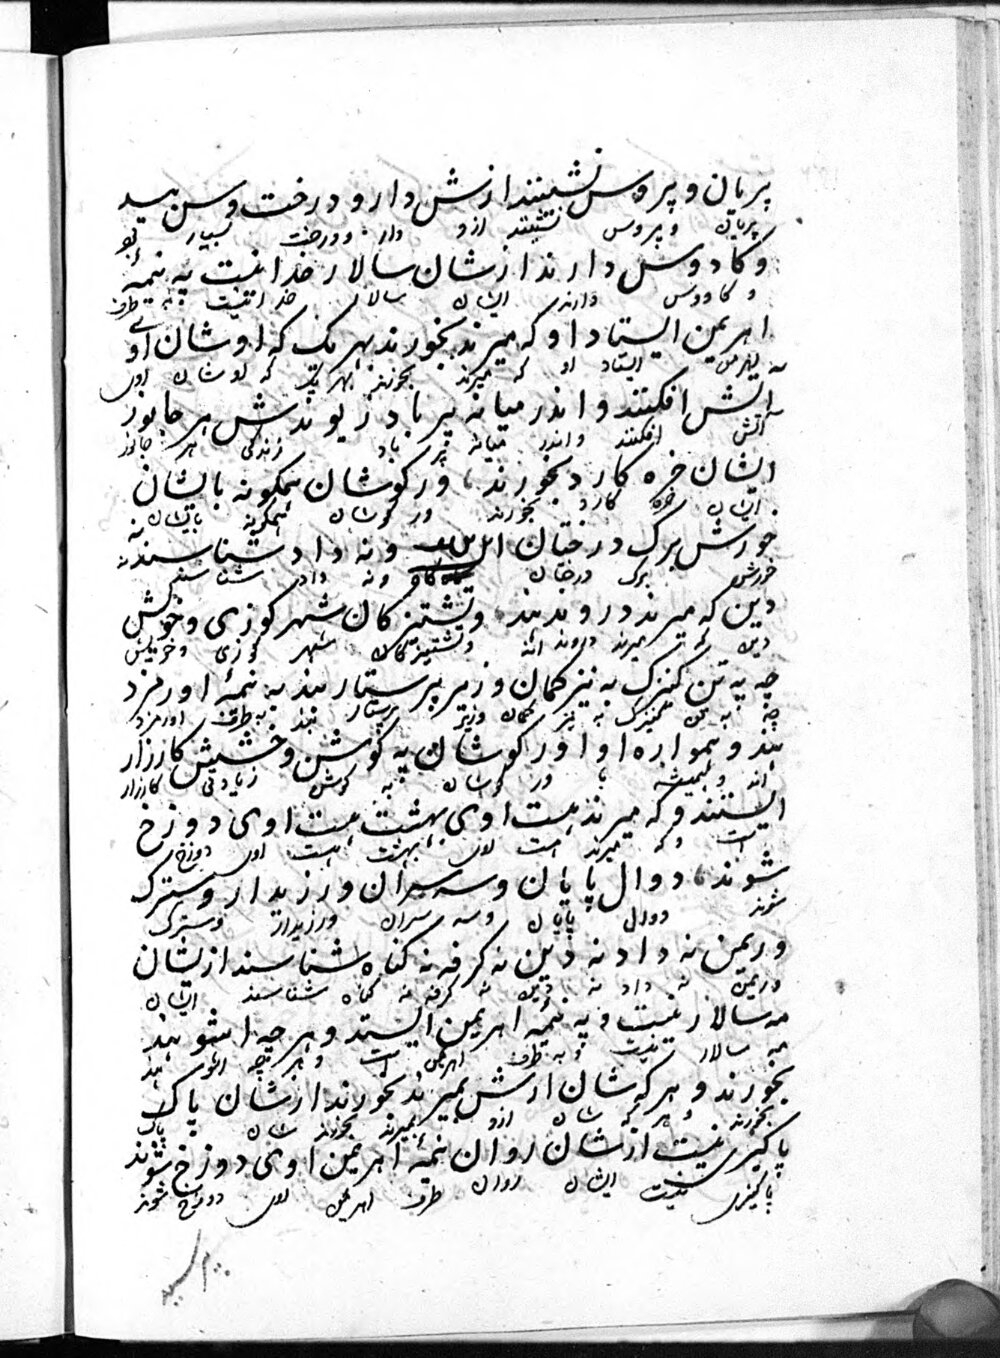 پریان و پروس نشینند ازش دار و درخت وسن بید
پریان و پروس نشینند ازو دار و درخت بسیار
و کادوس دارند ازشان سالار خدا نیت په نیمهٔ
و کاووس دارند ایشان سالار خداتیت به طرف
اهریمن ایستاد او که میرند بخورند بهر یک که اوشان اوی
اهریمن ایستاد او که میرند بخورند بهر یک که اوشان اوی
آتش افکنند و اندر میانه پر باد زیوندش هر جانور
آتش افکنند و اندر میانه پر باد زندگی هر جانور
ایشان خره کارد بخورند، ور کوشان همگونه باشان
ایشان خره کارد بخورند ور کوشان همگونه باایشان
خورش برک درختان و نه داد شناسند نه
خورش برک درختان و نه داد شناسند نه
دین که میرند دروند هند و تشتیز کان شهر کوزی و خویش
دین که میرند دروند اند و تشتیز کان شهر کوزی و خویش
چه په تن کینزک به نیز کمان و زیر پرستار هند په نیمهٔ اورمزد
چه به تن کینزک به نیز کمان وزیر پرستار هند به طرف اورمزد
هند و همواره اوا ور کوشان په کوشن و خشیش کارزار
اند و همیشه با ور کوشان به کوشن زیادتی کارزار
ایستند و که میرند هست اوی بهشت هست اوی دوزخ
است و که میرند است اوی بهشت هست اوی دوزخ
شوند، دوال پایان و سه سران ورزیدار و سترک
شوند دوال پایان و سه سران ورزیدار و سترک
و ریمن نه داد نه دین نه کرفه نه کناه شناسند ازیشان
و ریمن نه داد نه دین نه کرفه نه کناه شناسند ایشان
مه سالار نیت و په نیمهٔ اهریمن ایستد و هر چه اشو هند
مه سالار نیت و به طرف اهریمن است و هر چه اشو هند
بخورند و هر که شان ازش بمیرند بخورند ازشان پاک
بخورند و هر که شان ازو بمیرند بخورند شان پاک
پاکیزی نیت ازشان روان نیمهٔ اهریمن اوی دوزخ شوند
پاکیزی نیت ایشان روان طرف اهریمن اوی دوزخ شوند